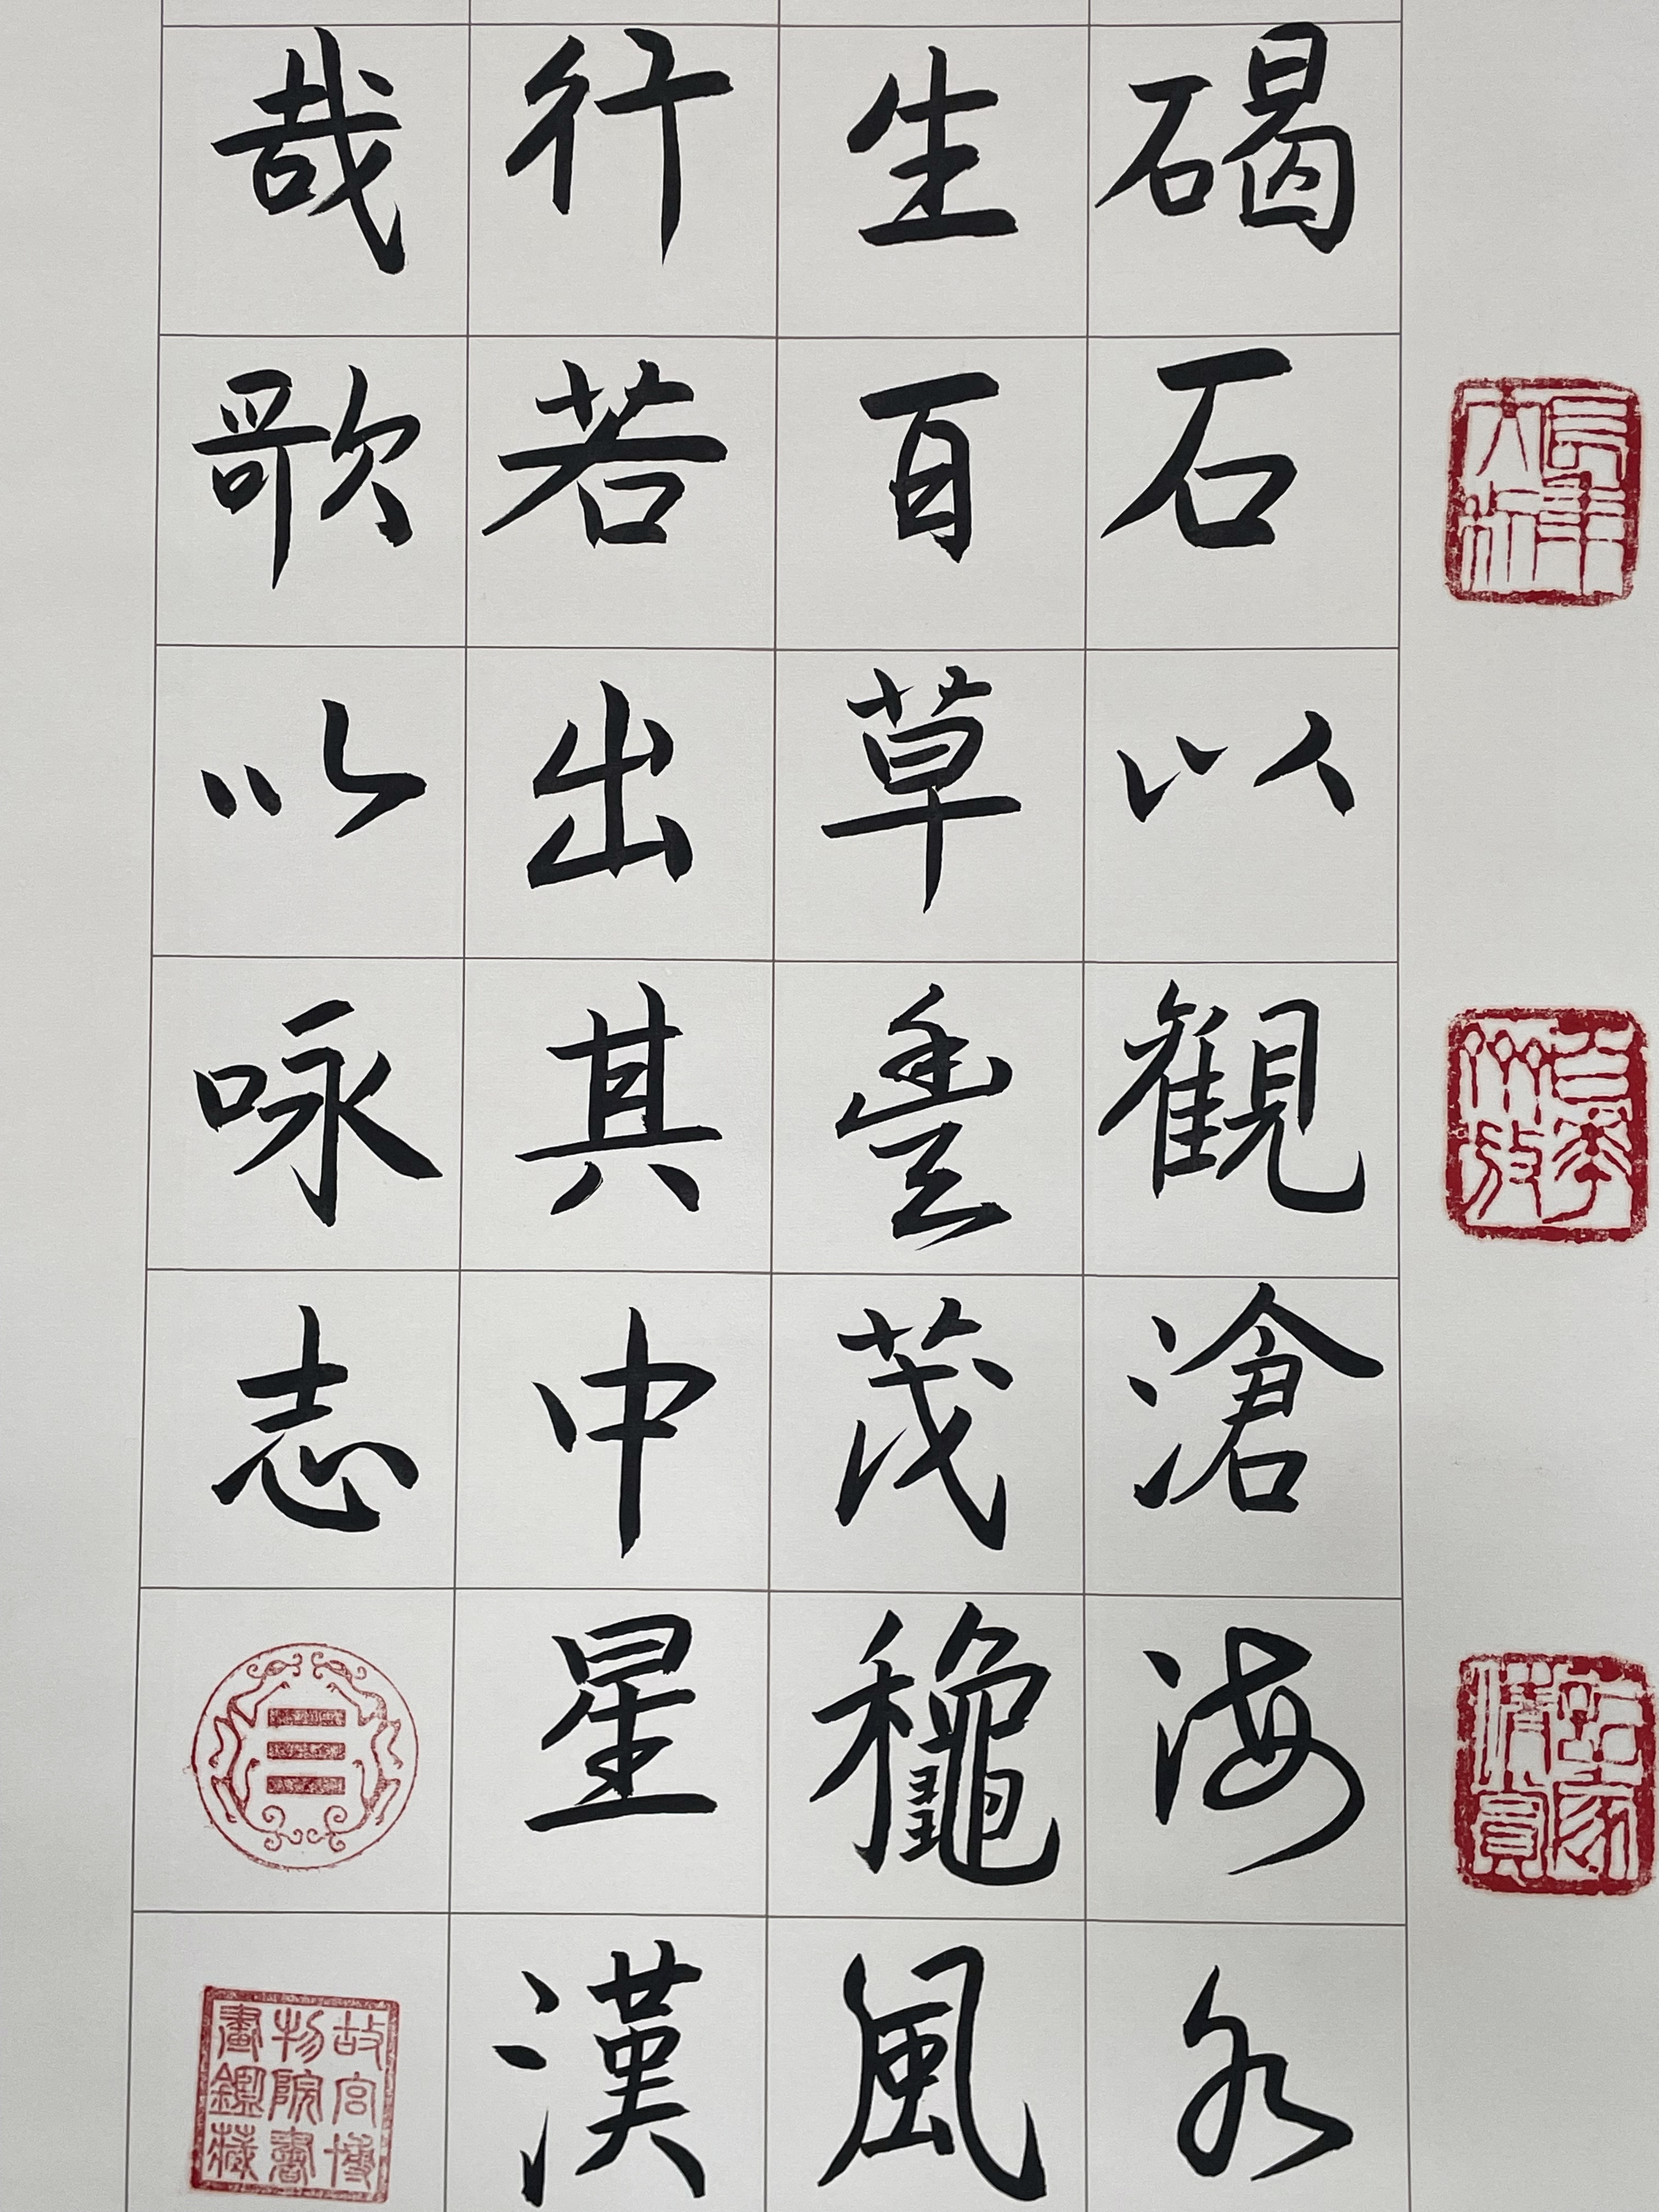 碣石以観滄海水
生百草豐茂龝風
行若出其中星漢
哉歌以咏志
故宮博
物院書
畫鑑藏